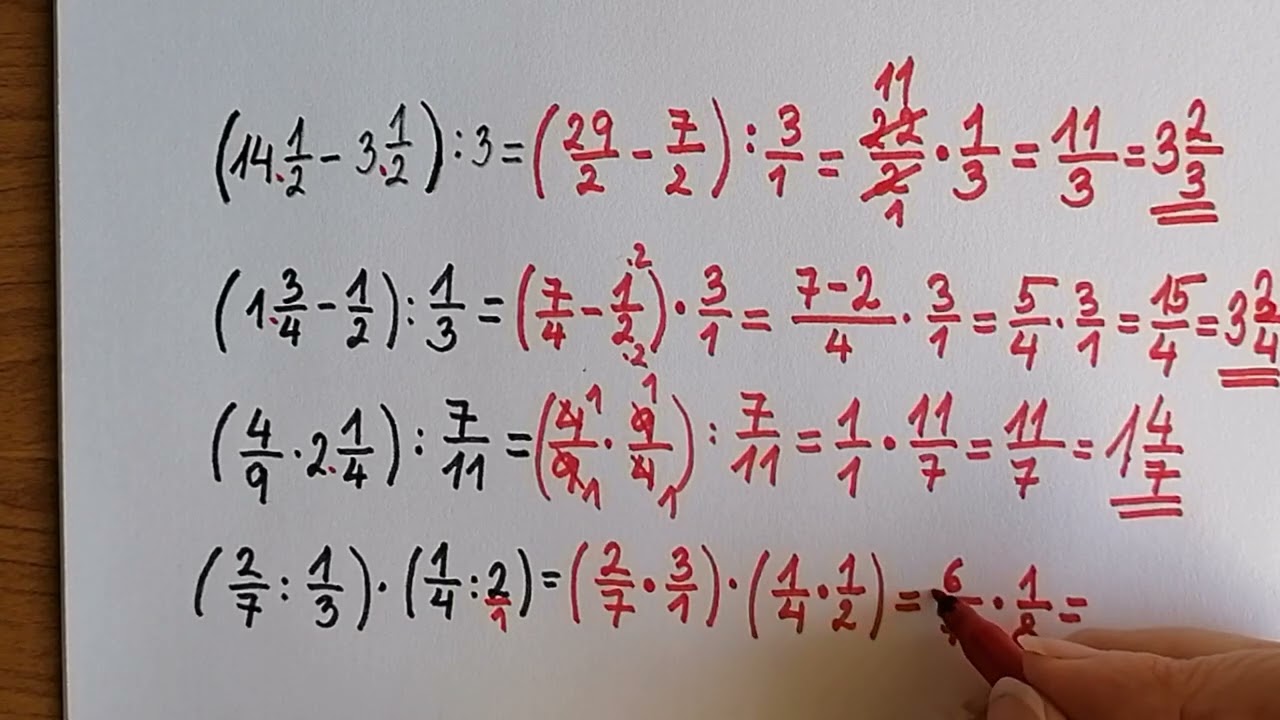 (14 1/2 - 3 1/2) : 3 = (29/2 - 7/2) : 3/1 = 22/2 11/1 · 1/3 = 11/3 = 3 2/3
(1 3/4 - 1/2) : 1/3 = (7/4 - 1·2/2·2) · 3/1 = 7-2/4 · 3/1 = 5/4 · 3/1 = 15/4 = 3 3/4
(4/9 · 2 1/4) : 7/11 = (4/9 1/1 · 9/4 1/1) : 7/11 = 1/1 · 11/7 = 11/7 = 1 4/7
(2/7 : 1/3) · (1/4 : 2/1) = (2/7 · 3/1) · (1/4 · 1/2) = 6/ · 1/8 =